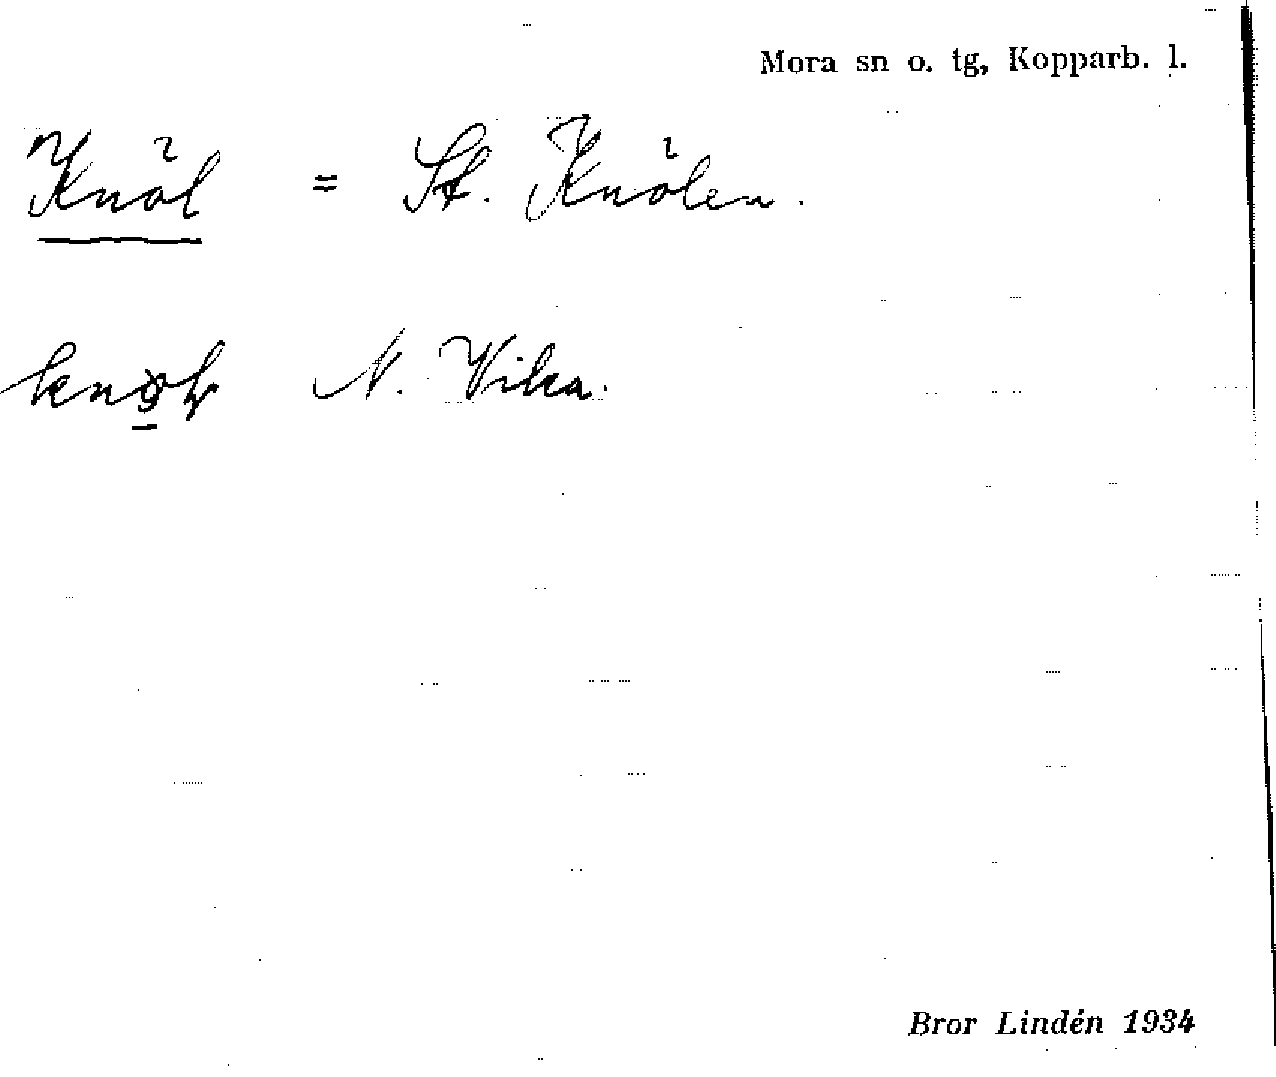 Mora sn o. tg, Kopparb. l.
Knöl = St. Knölen.
N. Vika.
Bror Lindén 1934